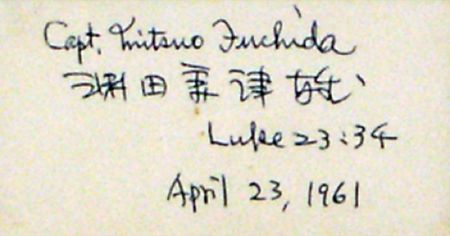 Capt. Mitsuo Fuchida
淵田美津雄
Luke 23:34
April 23, 1961